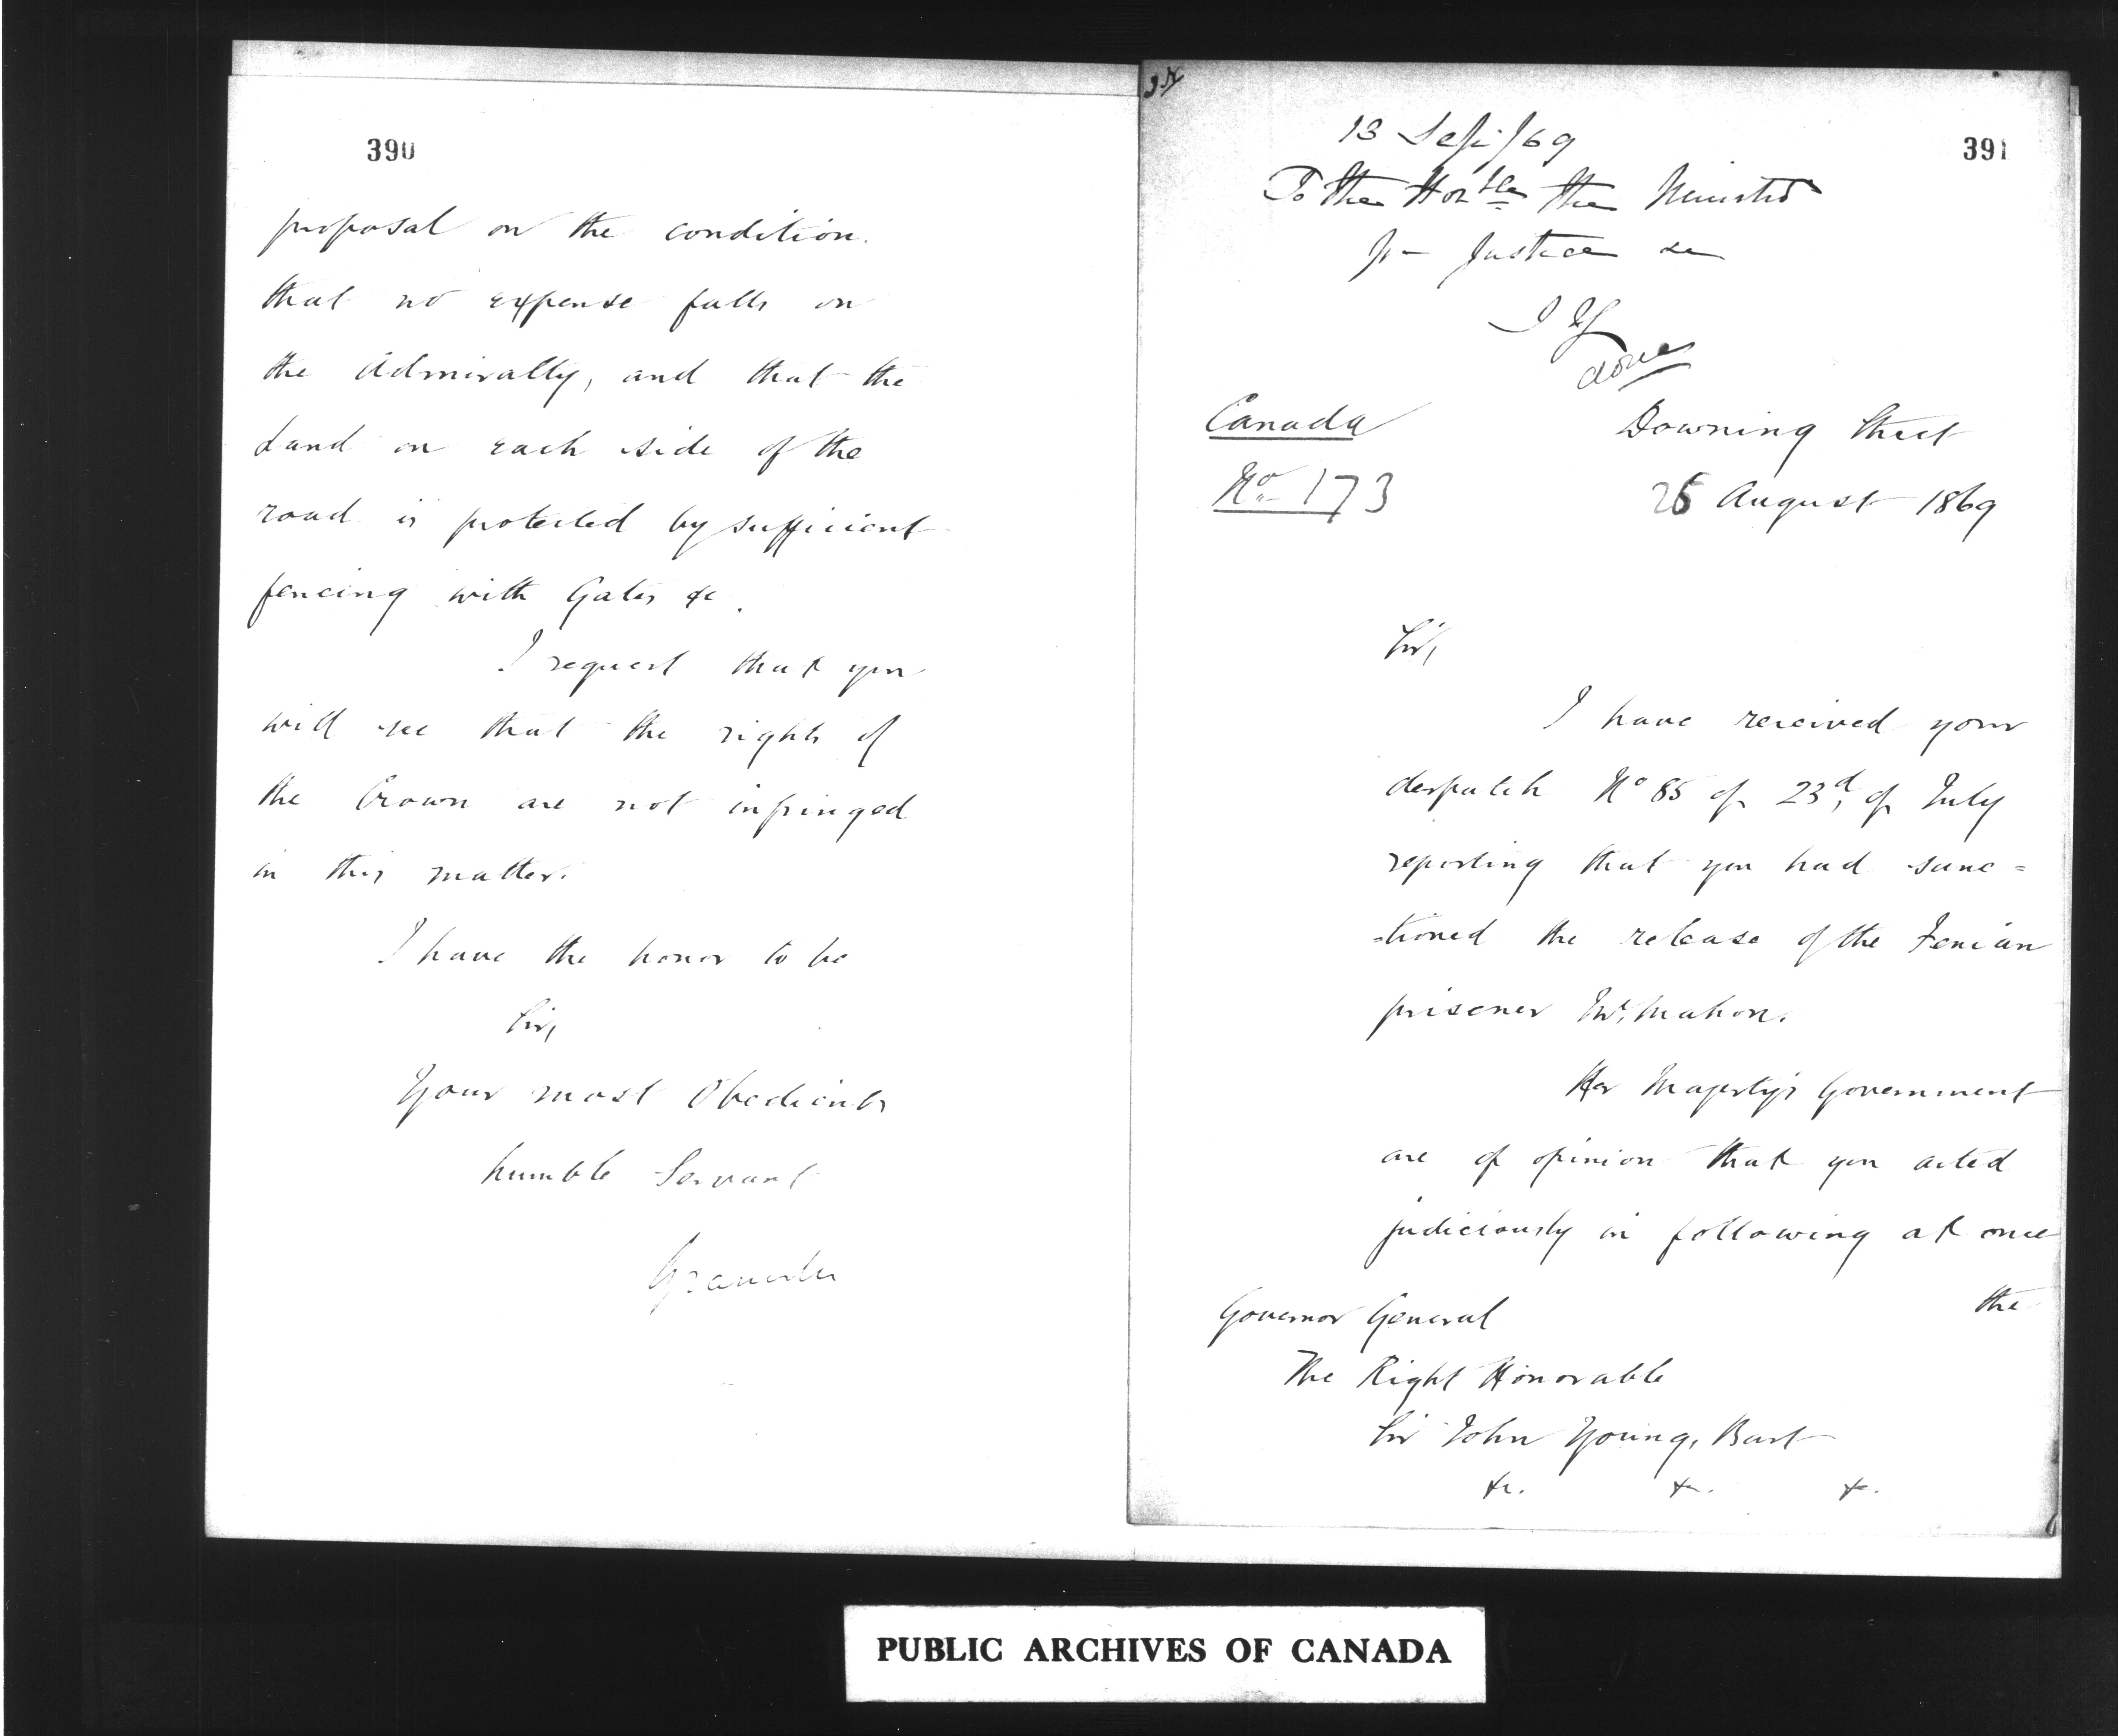 390
proposal on the condition.
that no expense falls on
the Admiralty, and that the
Land on each side of the
road is protected by sufficient
fencing with Gates &c.
I request that you
will see that the rights of
the Crown are not infringed
in this matter.
I have the honor to be
Sir,
Your most Obedient
humble Servant
Granville
391
13 Sept/69
To the Honble the Minister
Justice &c
done
Canada
No. 173
Downing Street
26 August 1869
Sir,
I have received your
despatch No 85 of 23d, of July
reporting that you had sanc=
=tioned the release of the Fenian
prisoner Mc,Mahon.
Her Majesty's Government
are of opinion that you acted
judiciously in following at once
the
Governor General
The Right Honorable
Sir John Young, Bart
&c. &c. &c.
PUBLIC ARCHIVES OF CANADA